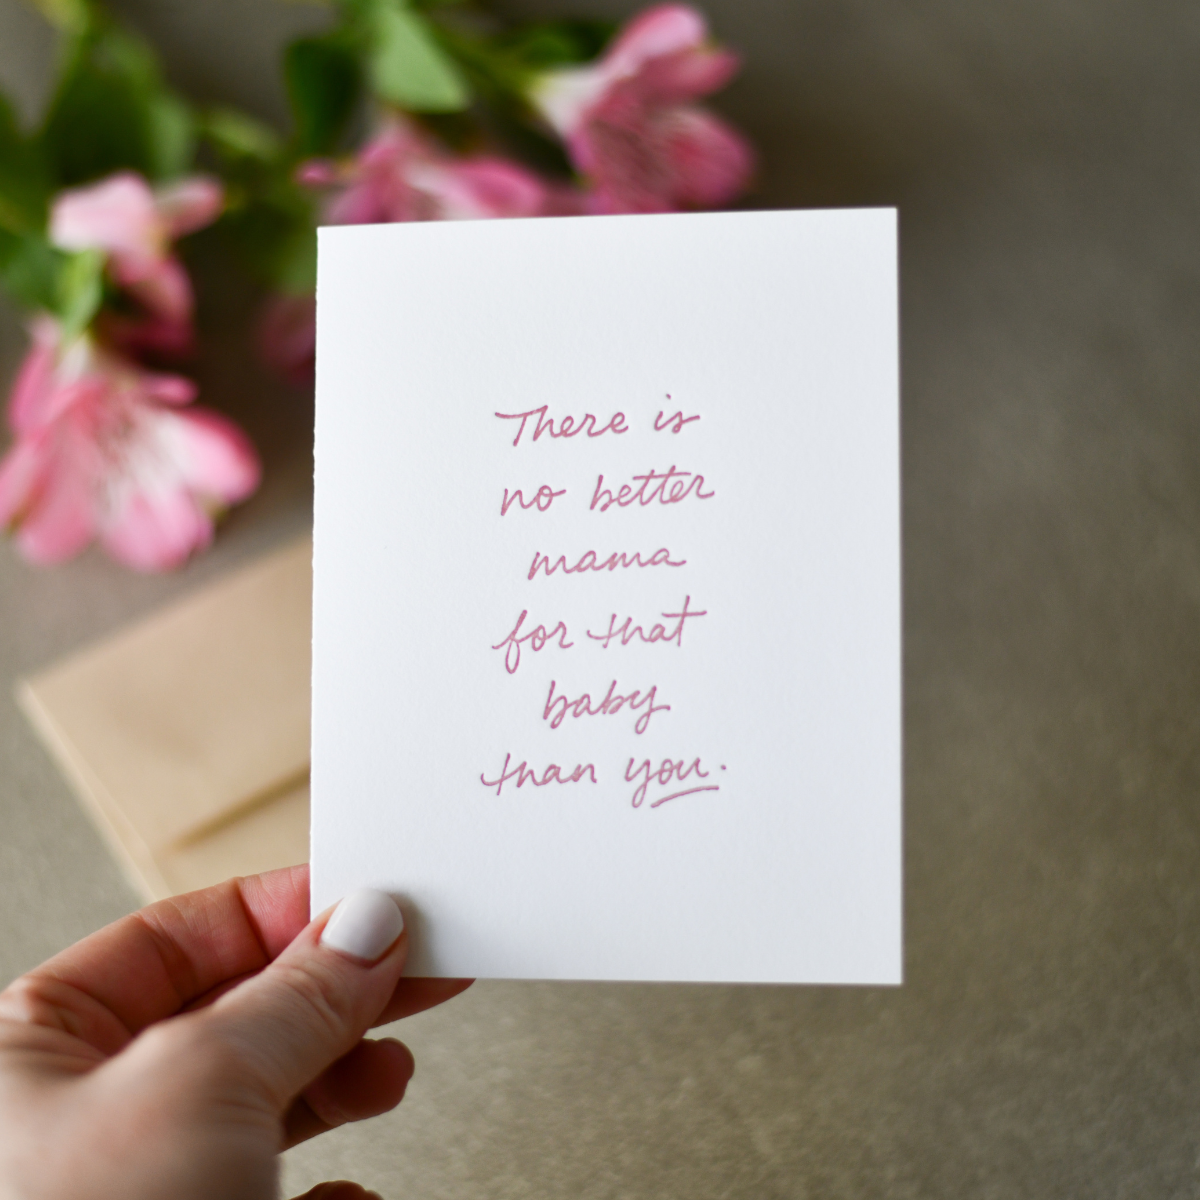 There is
no better
mama
for that
baby
than you.